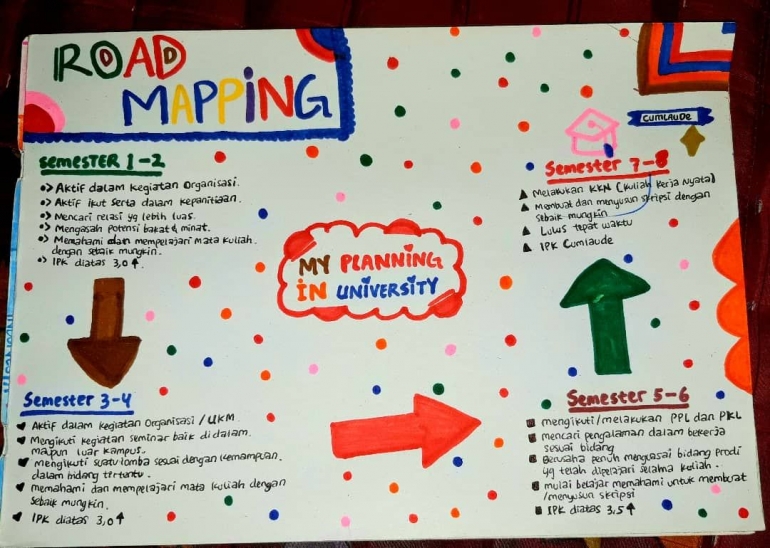 ROAD
MAPPING
Semester 1-2
Aktif dalam kegiatan Organisasi.
Aktif ikut serta dalam kepanitiaan.
Mencari relasi yg lebih luas.
Mengasah potensi bakat & minat.
Memahami dan mempelajari mata kuliah.
dengan sebaik mungkin.
IPK diatas 3,0 ↑.
Semester 3-4
Aktif dalam kegiatan Organisasi / UKM
Mengikuti kegiatan seminar baik di dalam.
maupun luar kampus.
mengikuti suatu lomba sesuai dengan kemampuan.
dalam bidang tertentu.
memahami dan mempelajari mata kuliah dengan
sebaik mungkin.
IPK diatas 3,0 ↑
MY PLANNING
IN UNIVERSITY
Semester 5-6
mengikuti/melakukan PPL dan PKL
mencari pengalaman dalam bekerja
sesuai bidang
Berusaha penuh menguasai bidang Prodi
yg telah dipelajari selama kuliah.
mulai belajar memahami untuk membuat
/menyusun skripsi
IPK diatas 3.5 ↑
CUMLAUDE
Semester 7-8
Melakukan KKN (Kuliah Kerja Nyata)
Membuat dan menyusun skripsi dengan
sebaik mungkin
Lulus tepat waktu
IPK Cumlaude